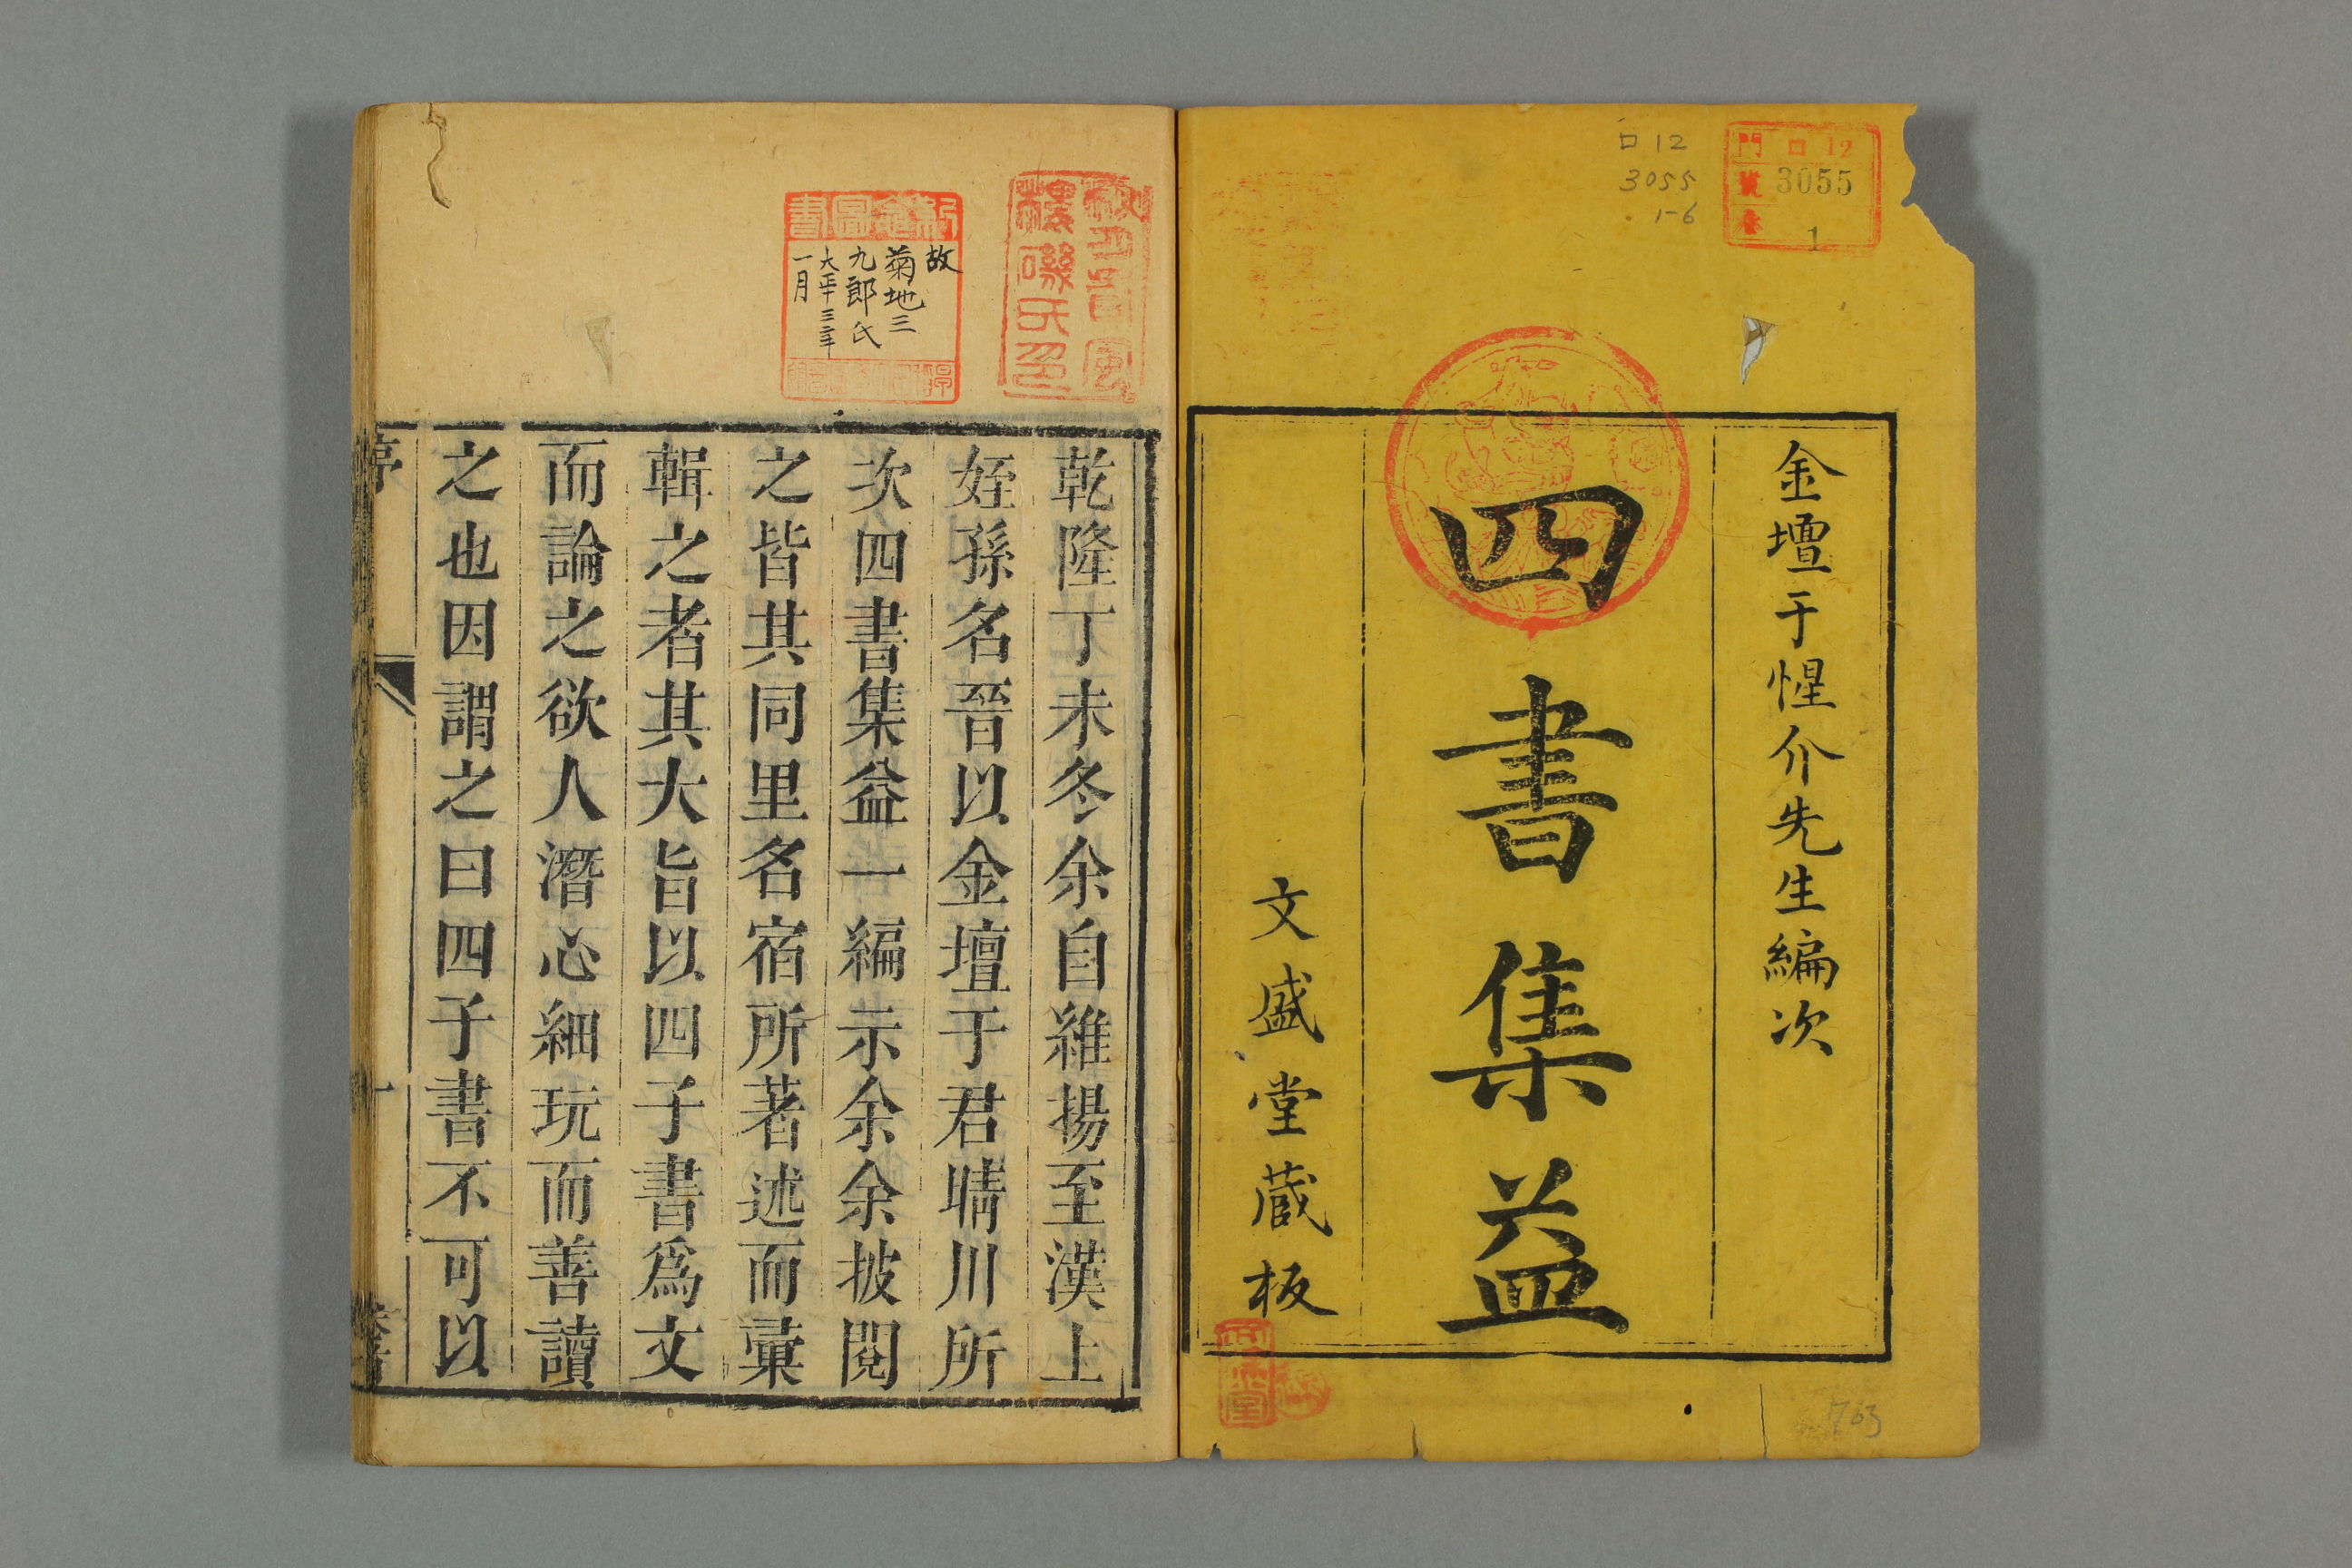 金壇于惺介先生編次
四書集益
文盛堂蔵板
門 ロ 12
號 3055
巻 1
ロ 12
3055
1-6
763
故
菊地三
九郎氏
大正十三年
一月
乾隆丁未冬余自維揚至漢上
姪孫名晉以金壇于君晴川所
次四書集益一編示余余披閱
之皆其同里名宿所著述而彙
輯之者其大旨以四子書爲文
而論之欲人潛心細玩而善讀
之也因謂之曰四子書不可以
序
一